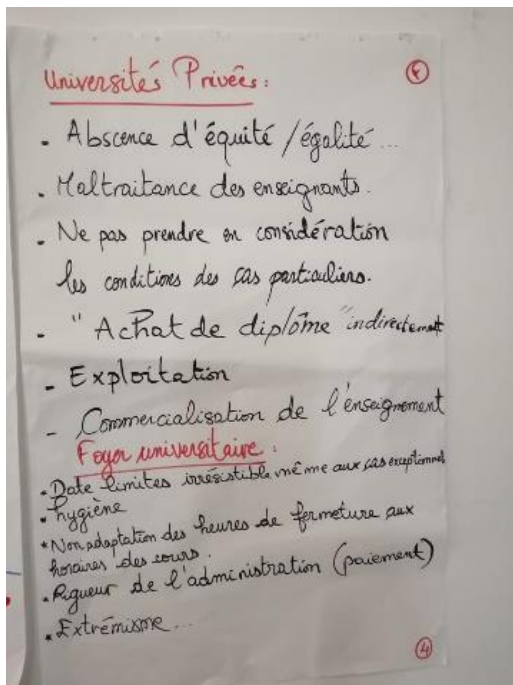 Universités Privées :
- Abscence d'équité / égalité ...
- Maltraitance des enseignants.
- Ne pas prendre en considération
les conditions des cas particuliers.
- "Achat de diplôme" indirectement
- Exploitation
- Commercialisation de l'enseignement
Foyer universitaire :
• Date limites irrésistible même aux cas exceptionnel
• hygiène
* Non adaptation des heures de fermeture aux
horaires des cours.
• Rigueur de l'administration (paiement)
• Extrémisme...
4